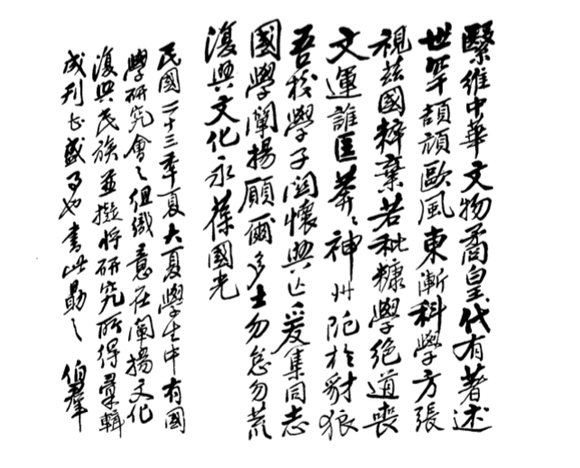 繄維中華文物矞皇代有著述
世罕頡頏歐風東漸科學方張
視茲國粹棄若秕糠學絕道喪
文運誰匡莽々神州阨於豺狼
吾校學子關懷興亡爰集同志
國學闡揚願爾多士勿怠勿荒
復興文化永葆國光
民國二十三季夏大夏學生中有國
學研究會之組織意在闡揚文化
復興民族並擬將研究所得彙輯
成刊盛事也書此勗之 伯羣